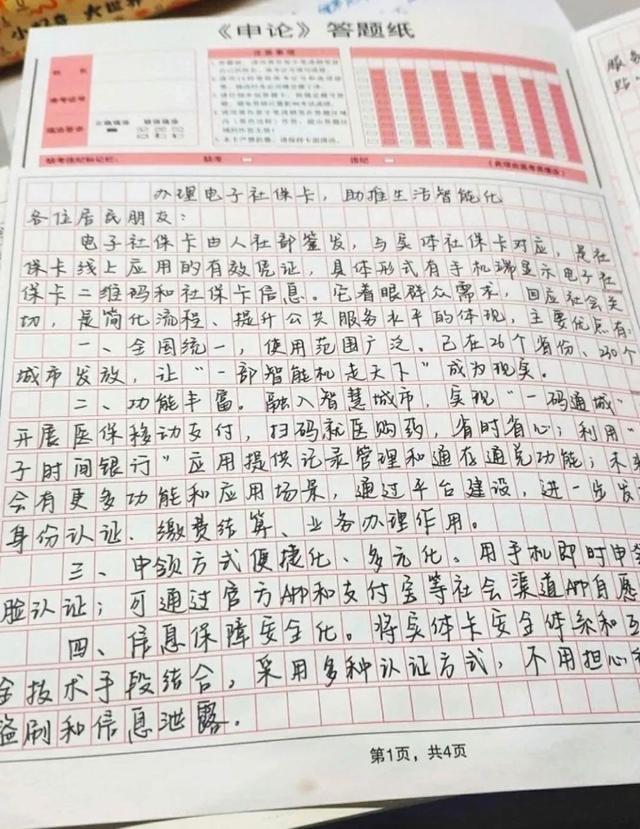 小好奇 大世界
《申论》答题纸
服务
注意事项
姓名
准考证号
填涂要求
正确填涂
错误填涂
缺考违纪标记栏:
缺考
违纪
办理电子社保卡，助推生活智能化
各位居民朋友：
电子社保卡由人社部签发，与实体社保卡对应，是社
保卡线上应用的有效凭证，具体形式有手机端显示电子社
保卡二维码和社保卡信息。它着眼群众需求，回应社会关
切，是简化流程、提升公共服务水平的体现，主要优点有
一、全国统一，使用范围广泛。已在26个省份、230个
城市发放，让“一部智能机走天下”成为现实。
二、功能丰富。融入智慧城市，实现“一码通城”
开展医保移动支付，扫码就医购药，省时省心；利用“
子时间银行”应用提供记录管理和通存通兑功能；未来
会有更多功能和应用场景，通过平台建设，进一步发
身份认证、缴费结算、业务办理作用。
三、申领方式便捷化、多元化。用手机即时申领
脸认证；可通过官方APP和支付宝等社会渠道APP自愿
四、信息保障安全化。将实体卡安全体系和互
全技术手段结合，采用多种认证方式，不用担心
盗刷和信息泄露。
第1页，共4页